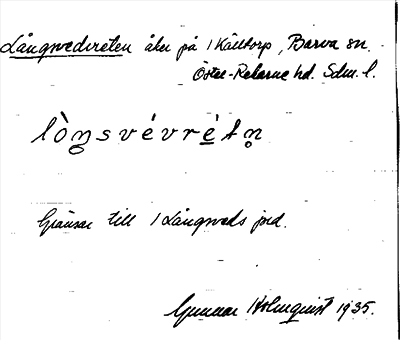 Långwedvreten åker på 1 Källtorp, Barva sn.
Öster-Rekarne hd. Sdm. l.
lò̀ŋsvévrètn̥
Gränsar till 1 Långweds jord.
Gunnar Holmquist 1935.